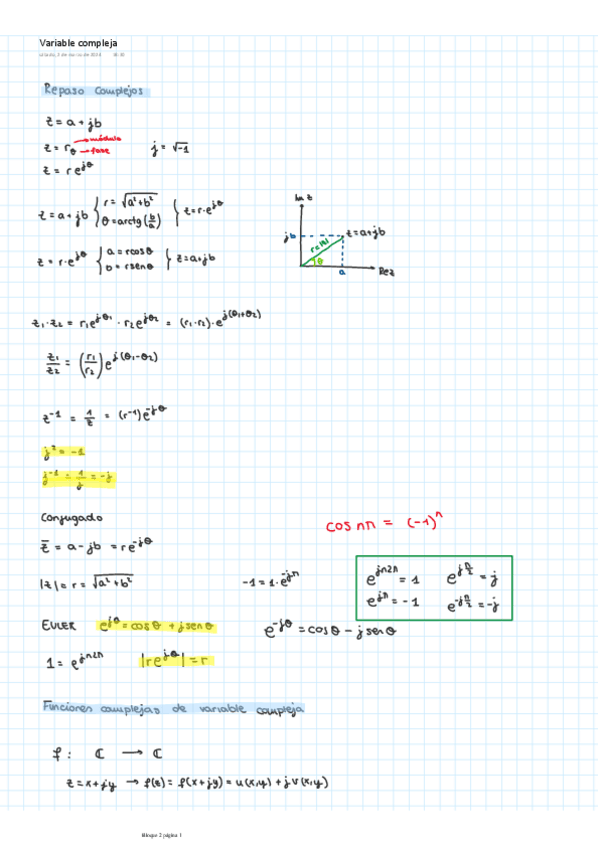 Variable compleja
Repaso Complejos
z = a + jb
z = r_θ → módulo → fase
j = √-1
z = r e^{jθ}
z = a + jb { r = √(a²+b²) θ = arctg(b/a) } z = r·e^{jθ}
z = r·e^{jθ} { a = r cosθ b = r senθ } z = a+jb
Im z
jb
z = a+jb
r=|z|
θ
a
Re z
z₁·z₂ = r₁e^{jθ₁} · r₂e^{jθ₂} = (r₁·r₂)·e^{j(θ₁+θ₂)}
z₁/z₂ = (r₁/r₂) e^{j(θ₁-θ₂)}
z^{-1} = 1/z = (r^{-1}) e^{-jθ}
j² = -1
j^{-1} = 1/j = -j
Conjugado
cos nπ = (-1)^n
z̄ = a - jb = r e^{-jθ}
|z| = r = √(a²+b²)
-1 = 1·e^{-jπ}
e^{jn2π} = 1 e^{jπ/2} = j
e^{jπ} = -1 e^{-jπ/2} = -j
EULER e^{jθ} = cosθ + j senθ
e^{-jθ} = cosθ - j senθ
1 = e^{jn2π} |r e^{jθ}| = r
Funciones complejas de variable compleja
f : ℂ → ℂ
z = x + jy → f(z) = f(x+jy) = u(x,y) + j v(x,y)
Bloque 2 página 1